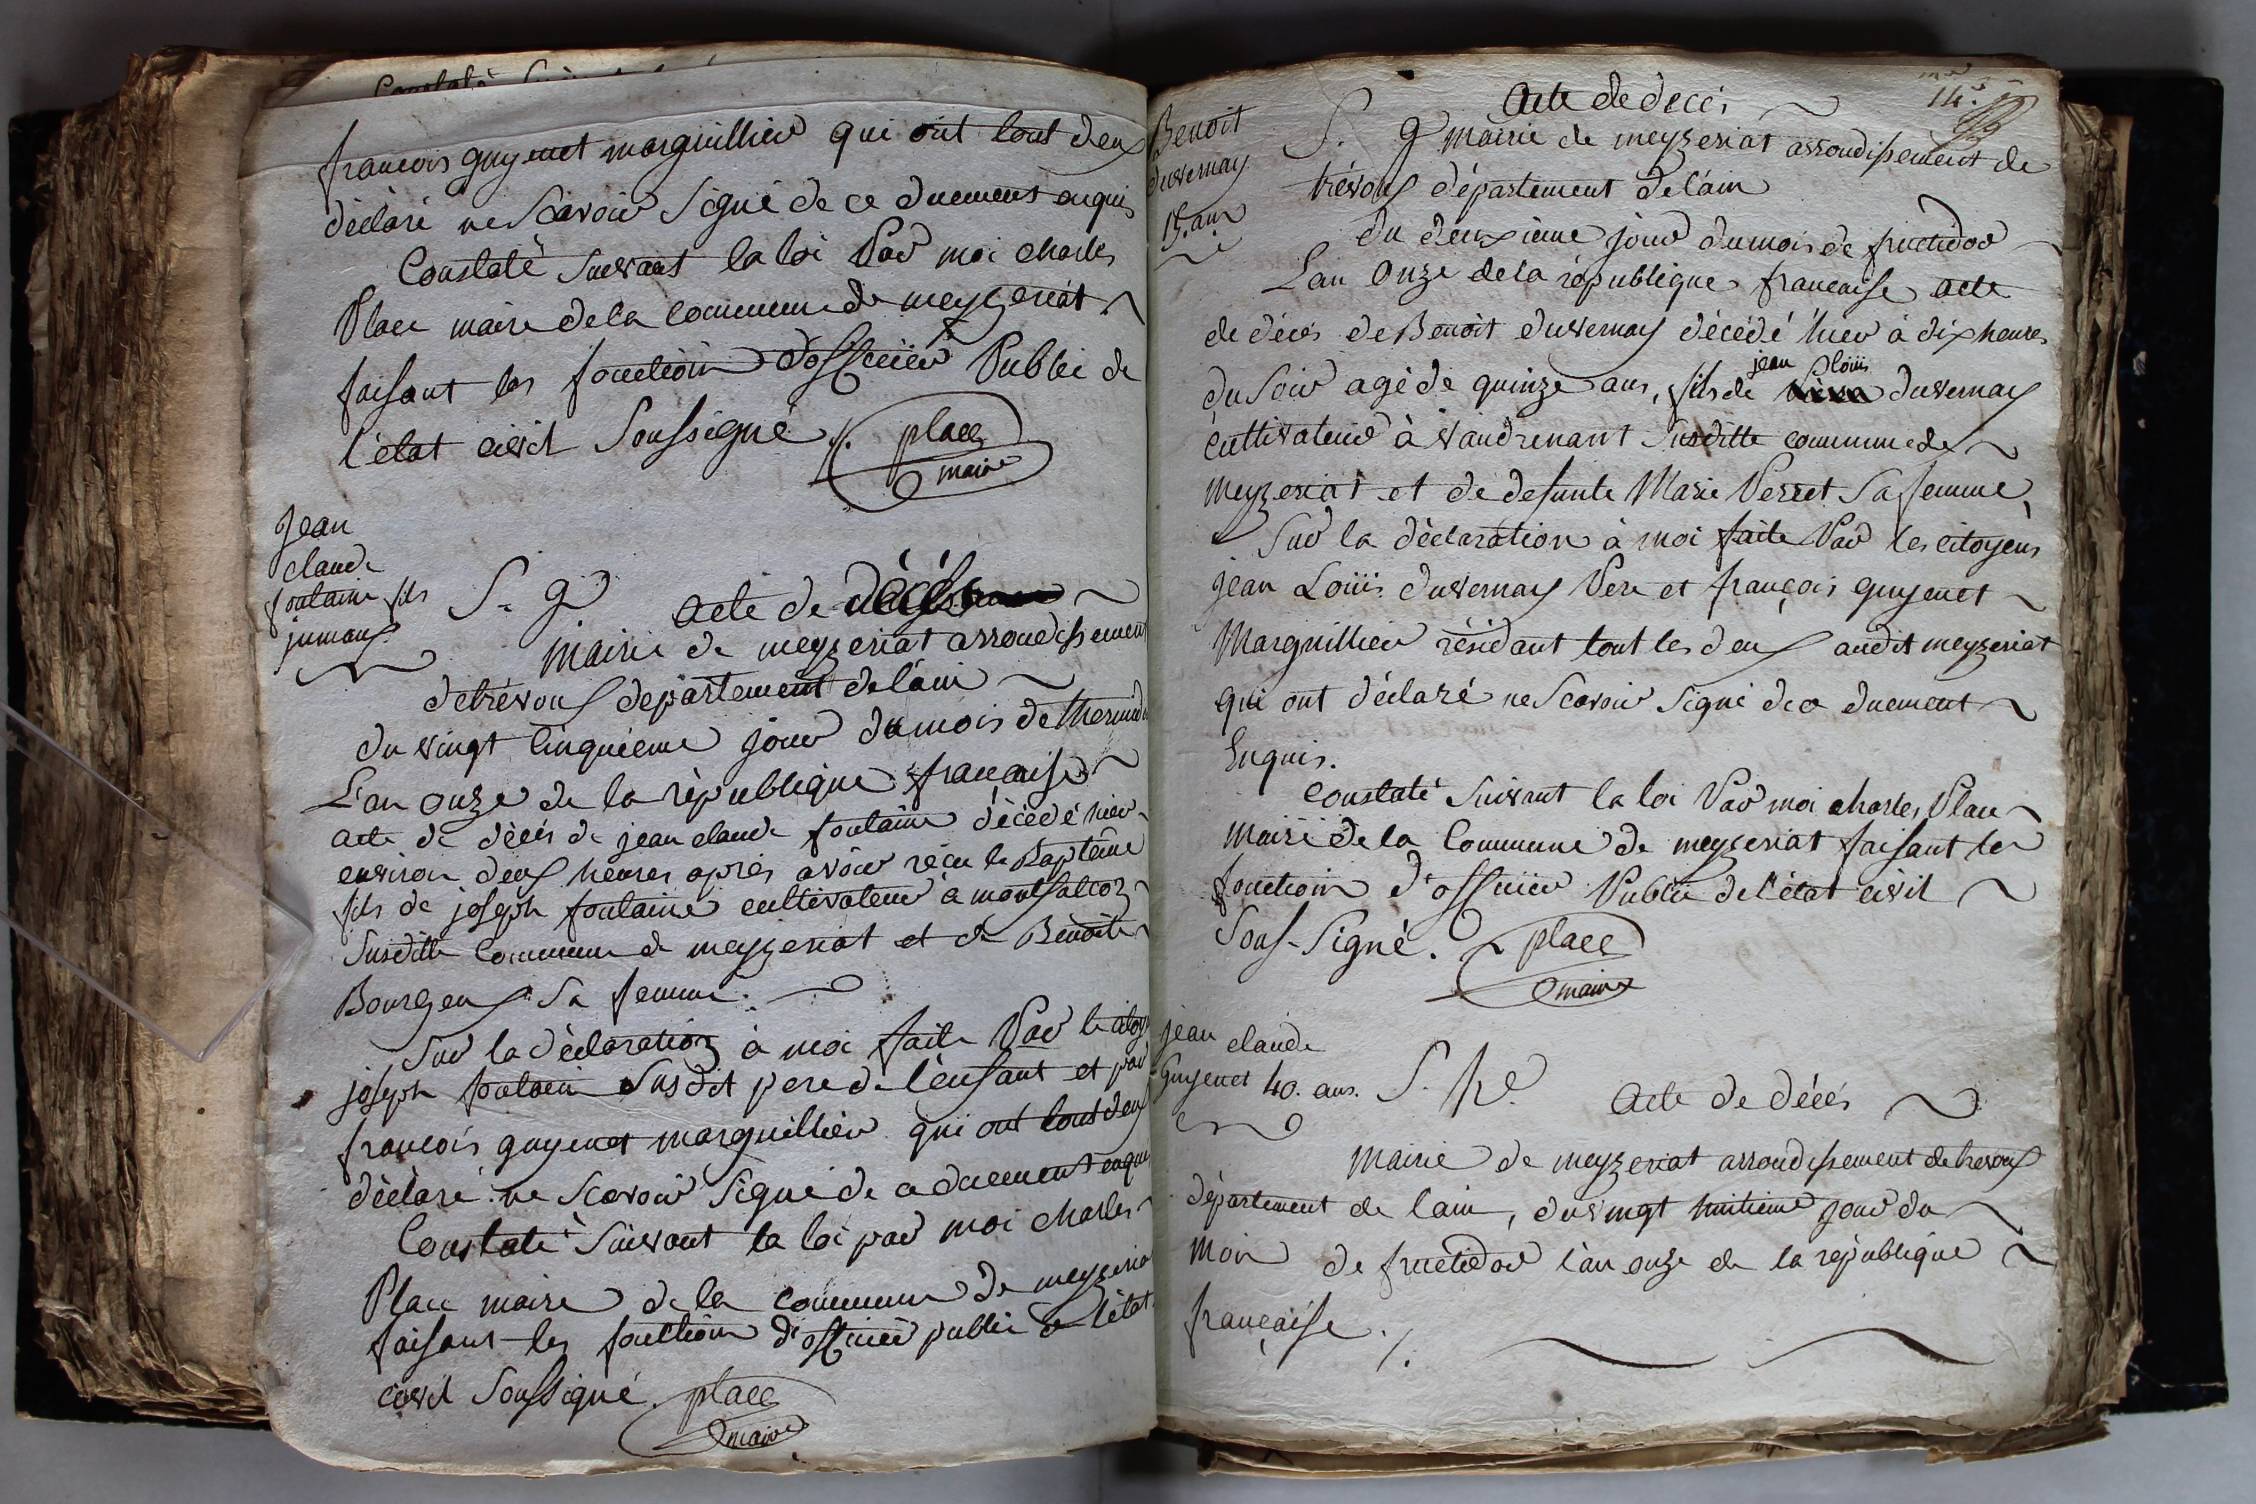 Constaté
françois guyenet marguillier qui ont tout deux
déclaré ne Scavoir Signé de ce duement enquis
Constaté Suivant la loi Par moi charles
Place maire de la commune de meyzeriat
faisant les fonction d'officier Public de
l'état civil Soussigné ./. place
maire
Jean
claude
fontaine fils
jumaux
S. g acte de décés
Mairie de meyzeriat arrondissement
de trévoux département de l'ain
du vingt Cinquième jour du mois de thermidor
L'an onze de la république française
acte de décés de jean claude fontaine décédé hier
environ deux heures après avoir réçu le Baptême
fils de joseph fontaine cultivateur à montfalcoz
Susditte Commune de meyzeriat et de Benoite
Bourgeux Sa femme.
Sur la déclaration à moi faite Par le citoyen
joseph fontaine Susdit pere de l'enfant et par
françois guyenet marguillier qui ont tout deux
déclaré ne Scavoir Signé de ce duement enquis
Constaté Suivant la loi par moi charles
Place maire de la commune de meyzeriat
faisant les fonction d'officier public de l'état
civil Soussigné. place
maire
14.
Acte de décés
Benoit
duvernay
15. ans
S. g Mairie de meyzeriat arrondissement de
trévoux département de l'ain
du deuxième jour du mois de fructidor
L'an Onze de la république française acte
de décés de Benoit duvernay décédé hier à dix heures
jean Loüis
du Soir agé de quinze ans, fils de duvernay
cultivateur à vaudrenant Susditte commune de
Meyzeriat et de defunte Marie Perret Sa femme,
Sur la déclaration à moi faite Par les citoyens
jean Loüis duvernay Pere et françois guyenet
Marguillier résidant tout les deux audit meyzeriat
qui ont déclaré ne Scavoir Signé de ce duement
Enquis.
Constaté Suivant la loi Par moi charles Place
Maire de la Commune de meyzeriat faisant les
fonction d'officier Public de l'état civil
Sous-Signé. place
maire
jean claude
Guyenet 40. ans. S. h. Acte de décés
Mairie de meyzeriat arrondissement de trevoux
département de l'ain, du vingt huitieme jour du
Mois de fructidor l'an onze de la république
française ./.